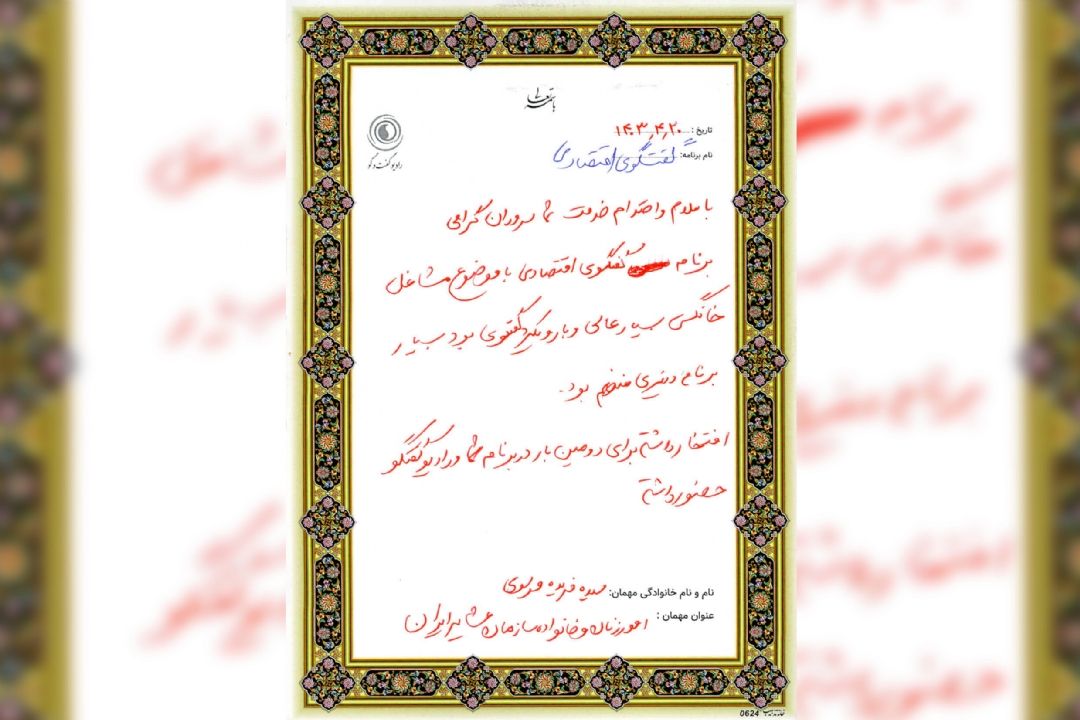 باسمه تعالی
رادیو گفت و گو
تاریخ: ۱۴۰۳٫۴٫۲۰
نام برنامه: گفتگوی اقتصادی
با سلام و احترام خدمت شما سروران گرامی
برنامه گفتگوی اقتصادی با موضوع مشاغل
خانگی بسیار عالی و با رویکرد گفتگوی بود بسیار
برنامه منظم بود.
افتخار داشتم برای دومین بار در برنامه شما و رادیو گفتگو
حضور داشتم
نام و نام خانوادگی مهمان: سیده فریده موسوی
عنوان مهمان: امور زنان و خانواده سازمان عشایر ایران
0624